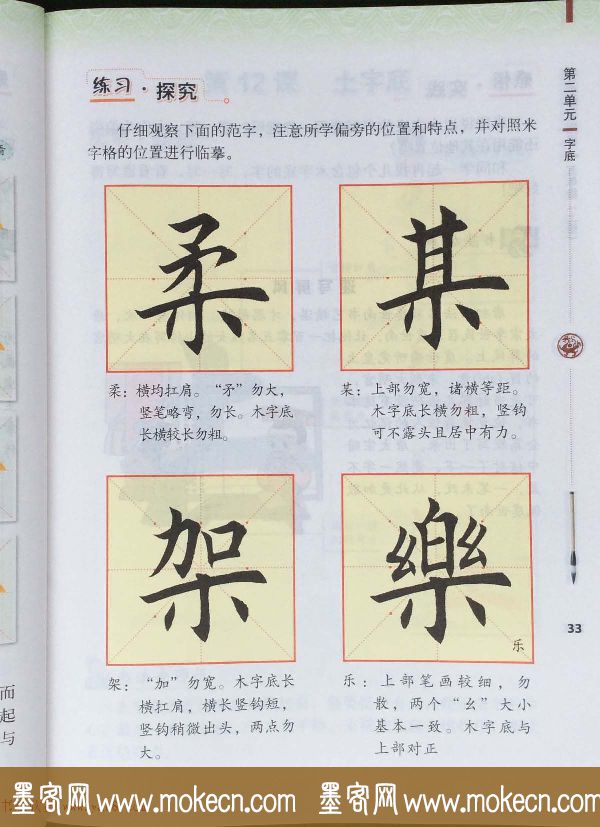 练习·探究
仔细观察下面的范字，注意所学偏旁的位置和特点，并对照米
字格的位置进行临摹。
柔
某
柔：横均扛肩。“矛”勿大，
竖笔略弯，勿长。木字底
长横较长勿粗。
某：上部勿宽，诸横等距。
木字底长横勿粗，竖钩
可不露头且居中有力。
架
樂
乐
架：“加”勿宽。木字底长
横扛肩，横长竖钩短，
竖钩稍微出头，两点勿
大。
乐：上部笔画较细，勿
散，两个“幺”大小
基本一致。木字底与
上部对正
第二单元
字底
33
而
起
与
墨客网 www.mokecn.com 墨客网 www.mokecn.com